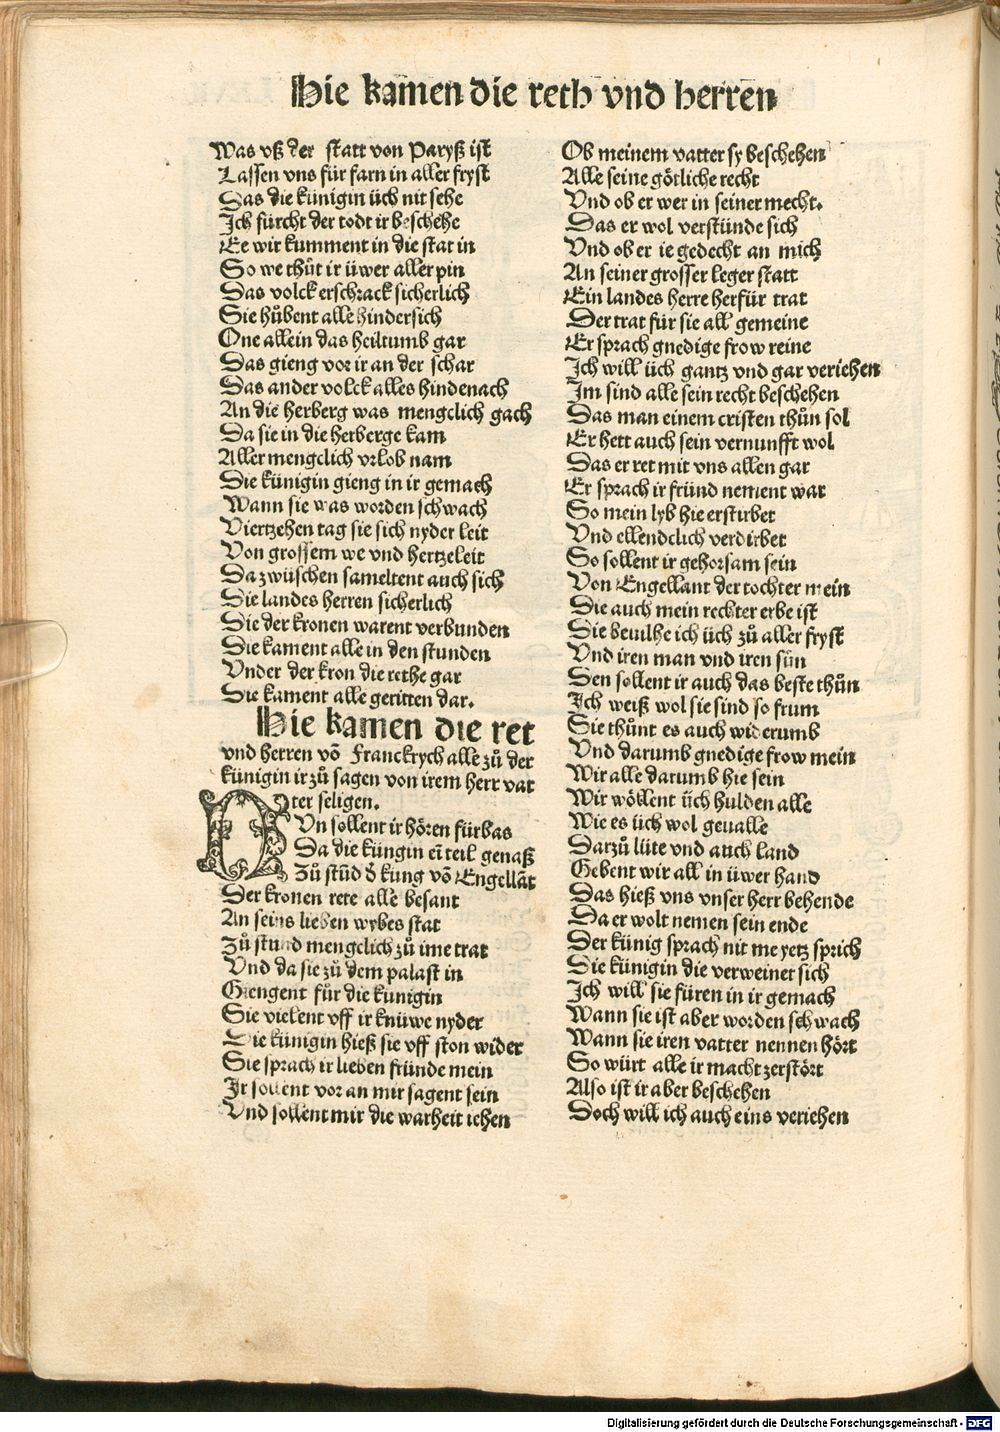 Hie kamen die reth vnd herren
Was vß der statt von Paryß ist
Lassen vns für farn in aller fryst
Das die künigin üch nit sehe
Ich fürcht der todt ir beschehe
Ee wir kumment in die stat in
So we thůt ir üwer aller pin
Das volck erschrack sicherlich
Sie hůbent alle hindersich
One allein das heiltumb gar
Das gieng vor ir an der schar
Das ander volck alles hindenach
An die herberg was mengclich gach
Da sie in die herberge kam
Aller mengclich vrlob nam
Die künigin gieng in ir gemach
Wann sie was worden schwach
Viertzehen tag sie sich nyder leit
Von grossem we vnd hertzeleit
Da zwüschen sameltent auch sich
Die landes herren sicherlich
Die der kronen warent verbunden
Die kament alle in den stunden
Vnder der kron die rethe gar
Die kament alle geritten dar.
Hie kamen die ret
vnd herren võ Franckrych alle zů der
künigin ir zů sagen von irem herr vat
ter seligen.
NVn sollent ir hören fürbas
Da die küngin eī teil genaß
Zů stūd d̄ kung võ Engellāt
Der kronen rete alle besant
An seins lieben wybes stat
Zů stund mengclich zů ime trat
Vnd da sie zů dem palast in
Giengent für die kunigin
Sie vielent vff ir knüwe nyder
Die künigin hieß sie vff ston wider
Sie sprach ir lieben fründe mein
Ir sollent vor an mir sagent sein
Vnd sollent mir die warheit iehen
Ob meinem vatter sy beschehen
Alle seine götliche recht
Vnd ob er wer in seiner mecht.
Das er wol verstünde sich
Vnd ob er ie gedecht an mich
An seiner grosser leger statt
Ein landes herre herfür trat
Der trat für sie all gemeine
Er sprach gnedige frow reine
Ich will üch gantz vnd gar veriehen
Im sind alle sein recht beschehen
Das man einem cristen thůn sol
Er hett auch sein vernunfft wol
Das er ret mit vns allen gar
Er sprach ir fründ nement war
So mein lyb hie erstirbet
Vnd ellendclich verdirbet
So sollent ir gehorsam sein
Von Engellant der tochter mein
Die auch mein rechter erbe ist
Die beuilhe ich üch zů aller fryst
Vnd iren man vnd iren sün
Den sollent ir auch das beste thůn
Ich weiß wol sie sind so frum
Sie thůnt es auch widerumb
Vnd darumb gnedige frow mein
Wir alle darumb hie sein
Wir wöllent üch hulden alle
Wie es üch wol geualle
Darzů lüte vnd auch land
Gebent wir all in üwer hand
Das hieß vns vnser herr behende
Da er wolt nemen sein ende
Der künig sprach nit me yetz sprich
Die künigin die verweinet sich
Ich will sie füren in ir gemach
Wann sie ist aber worden schwach
Wann sie iren vatter nennen hört
So würt alle ir macht zerstört
Also ist ir aber beschehen
Doch will ich auch eins veriehen
Digitalisierung gefördert durch die Deutsche Forschungsgemeinschaft - DFG